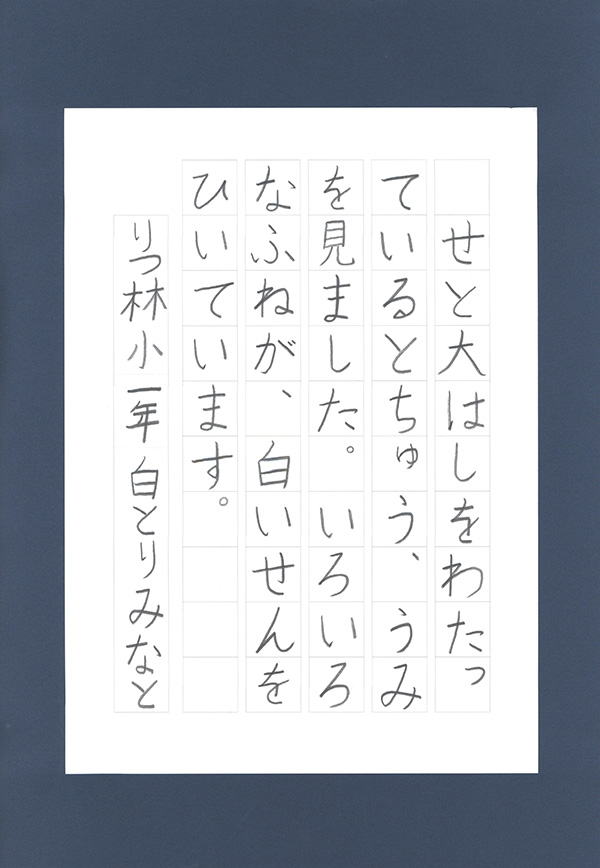 せと大はしをわたっ
ているとちゅう、うみ
を見ました。いろいろ
なふねが、白いせんを
ひいています。
りつ林小一年 白とりみなと